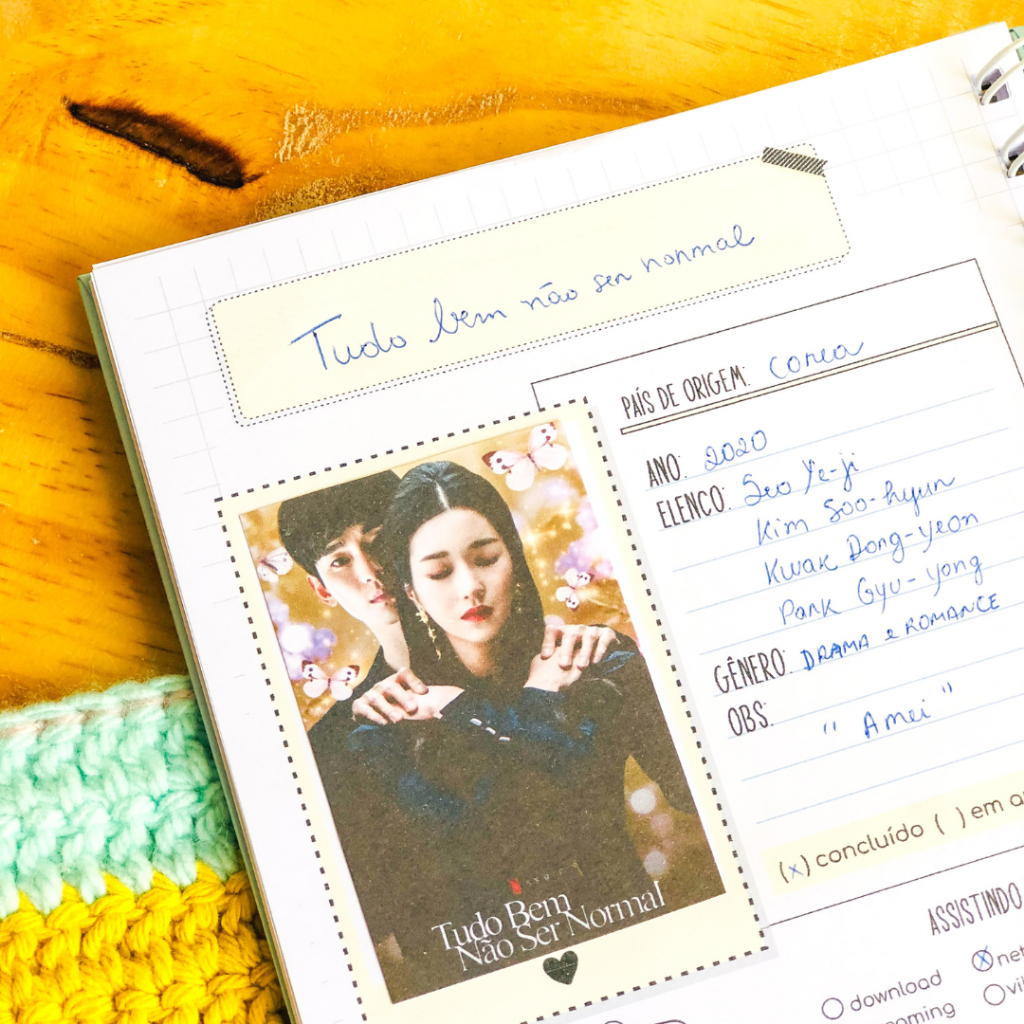 Tudo bem não ser normal
PAÍS DE ORIGEM: Corea
ANO: 2020
ELENCO: Seo Ye-ji
Kim Soo-hyun
Kwak Dong-yeon
Park Gyu-yong
GÊNERO: DRAMA e ROMANCE
OBS:
"Amei"
(x) concluído ( ) em a
Tudo Bem
Não Ser Normal
ASSISTINDO
download